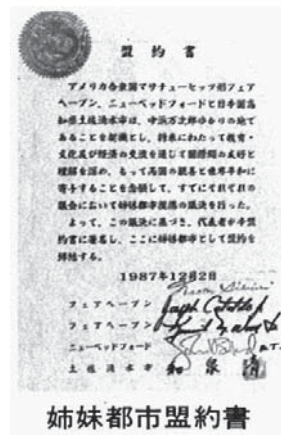 盟約書
アメリカ合衆国マサチューセッツ州フェア
ヘーブン、ニューベッドフォードと日本国高
知県土佐清水市は、中浜万次郎ゆかりの地で
あることを契機とし、将来にわたって教育・
文化及び経済の交流を通じて国際間の友好と
理解を深め、もって両国の親善と世界平和に
寄与することを念願して、すでにそれぞれの
議会において姉妹都市提携の議決を行った。
よって、この議決に基づき、代表者が本盟
約書に署名し、ここに姉妹都市として盟約を
締結する。
1987年12月2日
フェアヘーブン
フェアヘーブン
ニューベッドフォード
土佐清水市 和泉清
姉妹都市盟約書